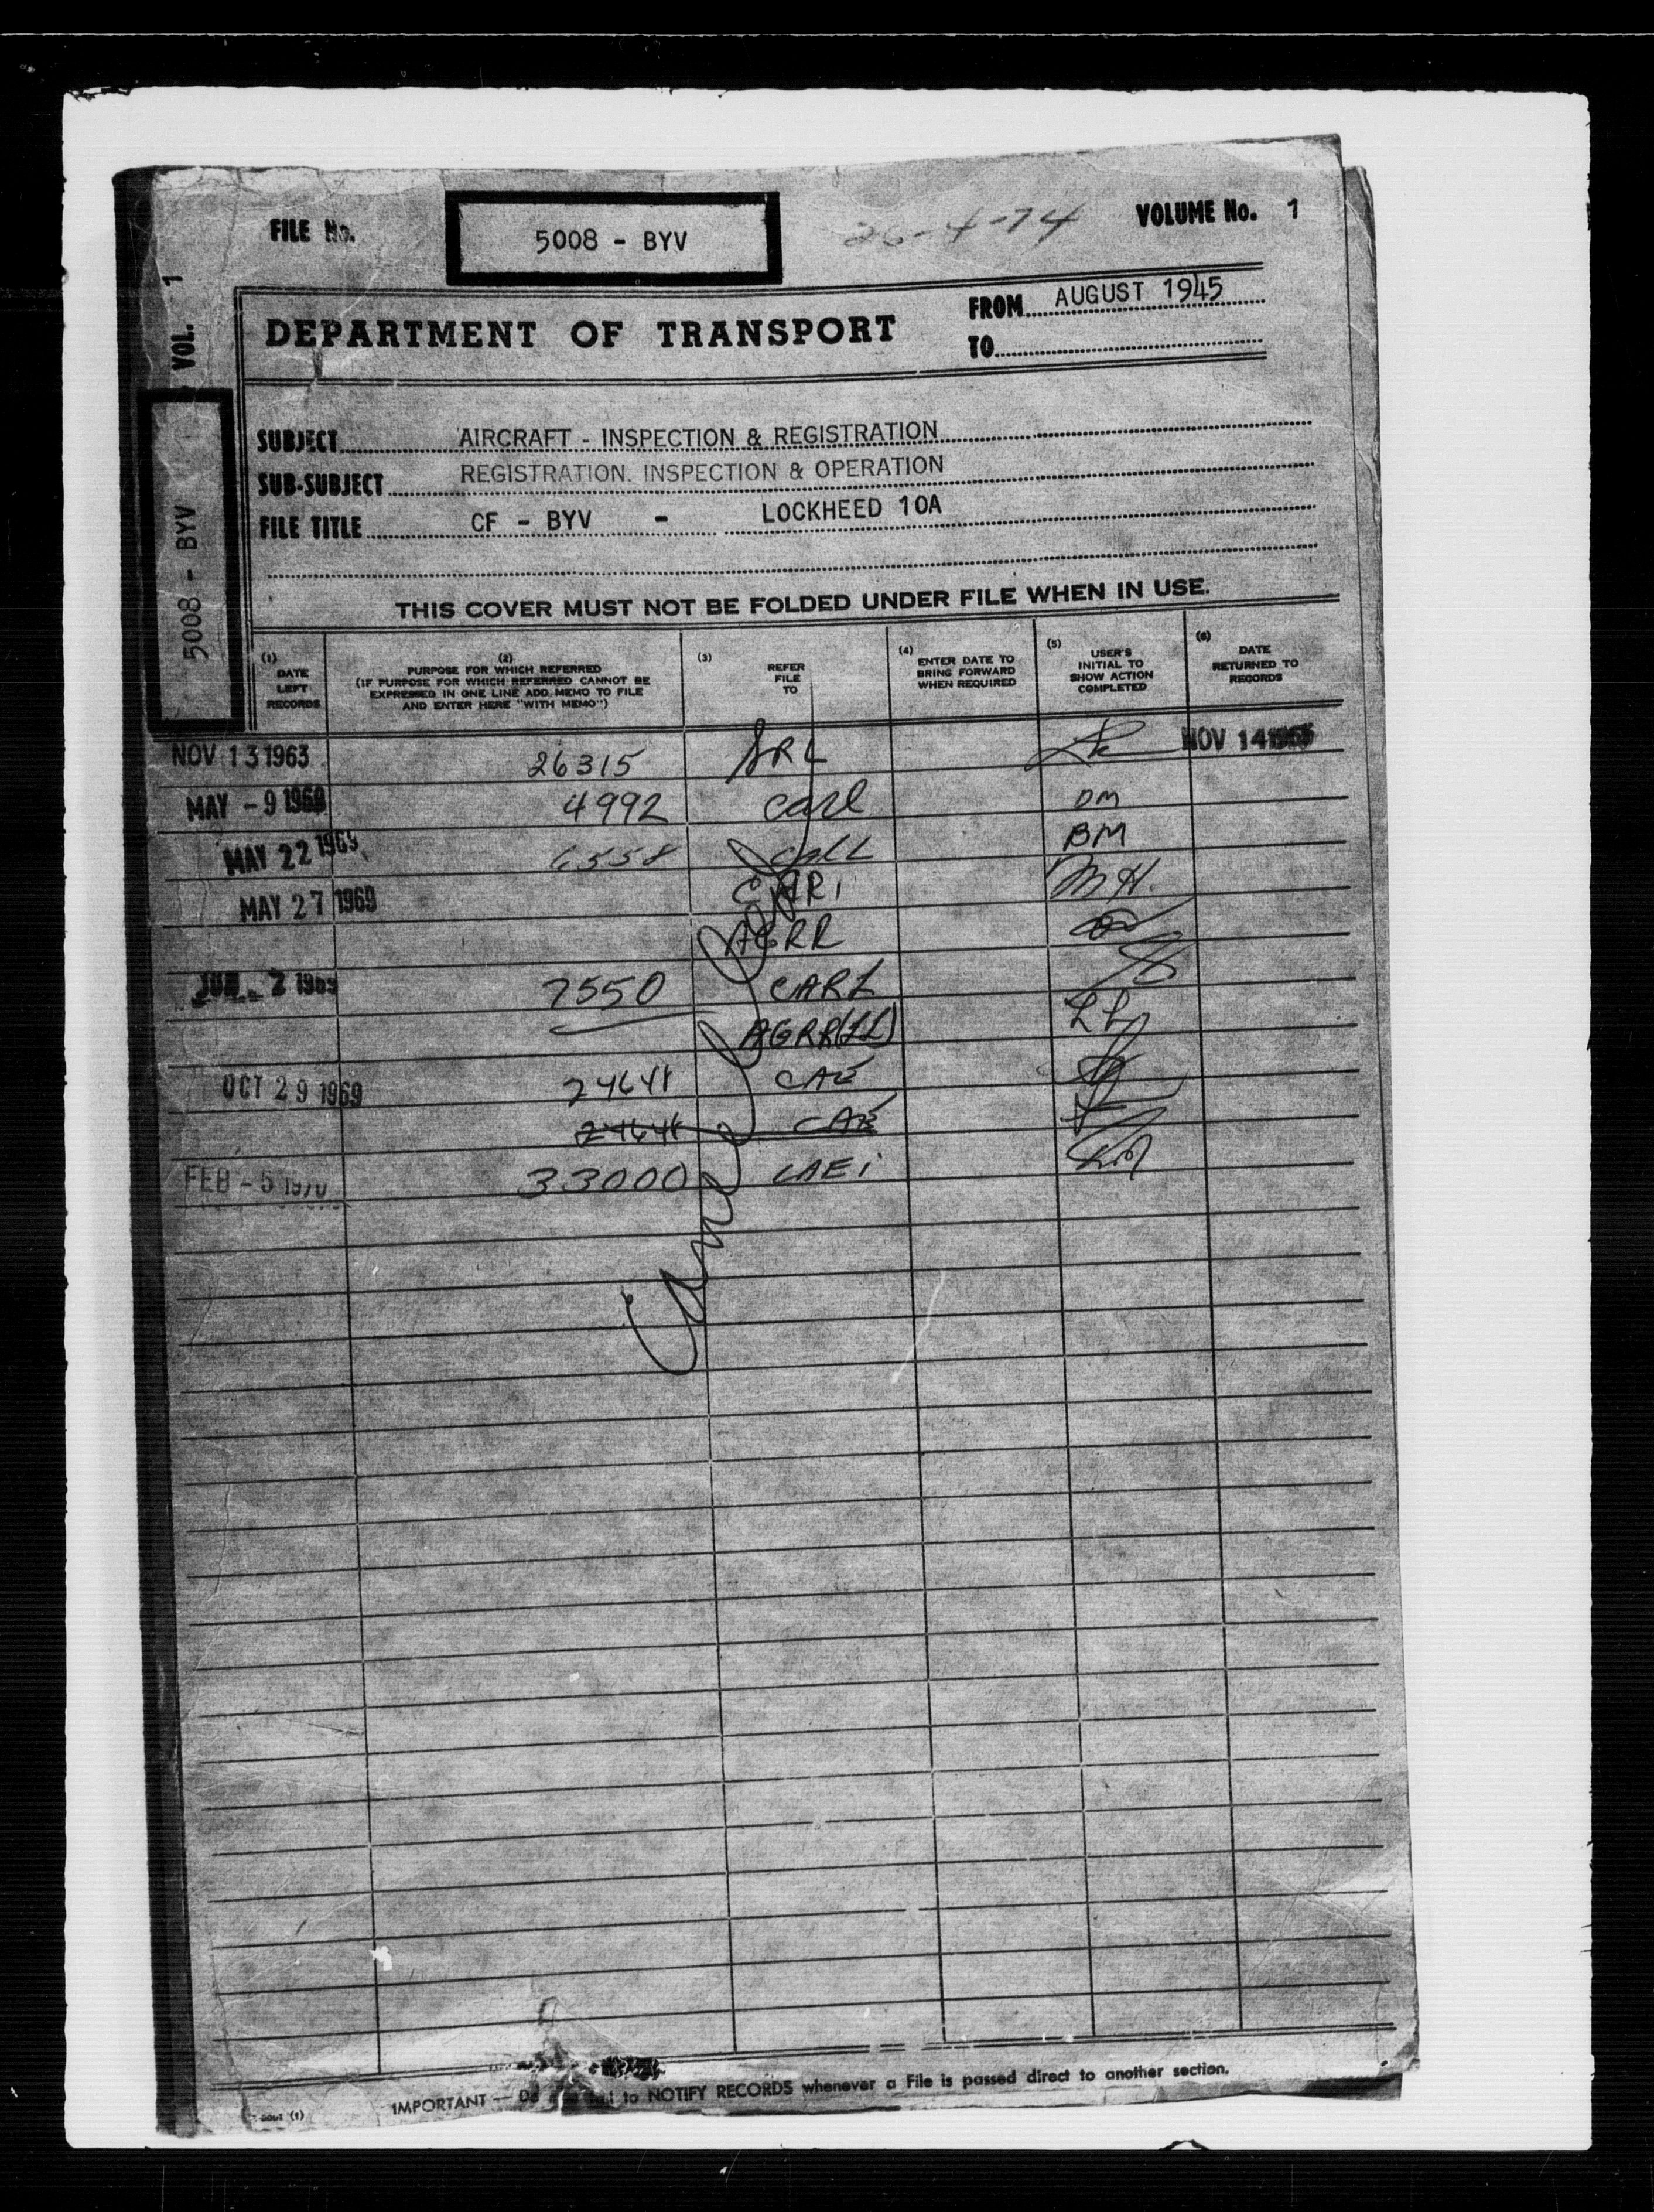 FILE No. 5008 - BYV 26-4-74 VOLUME No. 1
VOL. 1
5008 - BYV
FROM AUGUST 1945
DEPARTMENT OF TRANSPORT
TO
SUBJECT AIRCRAFT - INSPECTION & REGISTRATION
SUB-SUBJECT REGISTRATION. INSPECTION & OPERATION
FILE TITLE CF - BYV - LOCKHEED 10A
THIS COVER MUST NOT BE FOLDED UNDER FILE WHEN IN USE.
(1) DATE LEFT RECORDS
(2) PURPOSE FOR WHICH REFERRED (IF PURPOSE FOR WHICH REFERRED CANNOT BE EXPRESSED IN ONE LINE ADD MEMO TO FILE AND ENTER HERE "WITH MEMO")
(3) REFER FILE TO
(4) ENTER DATE TO BRING FORWARD WHEN REQUIRED
(5) USER'S INITIAL TO SHOW ACTION COMPLETED
(6) DATE RETURNED TO RECORDS
NOV 13 1963 26315 NOV 14
MAY - 9 1969 4992 Carl DM
MAY 22 1969 6558 BM
MAY 27 1969 CARI MH.
AGRR
JUN - 2 1969 7550 CARL
AGRR(LL) LL
OCT 29 1969 24648 CAE
24648 CAE
FEB - 5 1970 33000 CAEI
Cancelled
IMPORTANT — to NOTIFY RECORDS whenever a File is passed direct to another section.